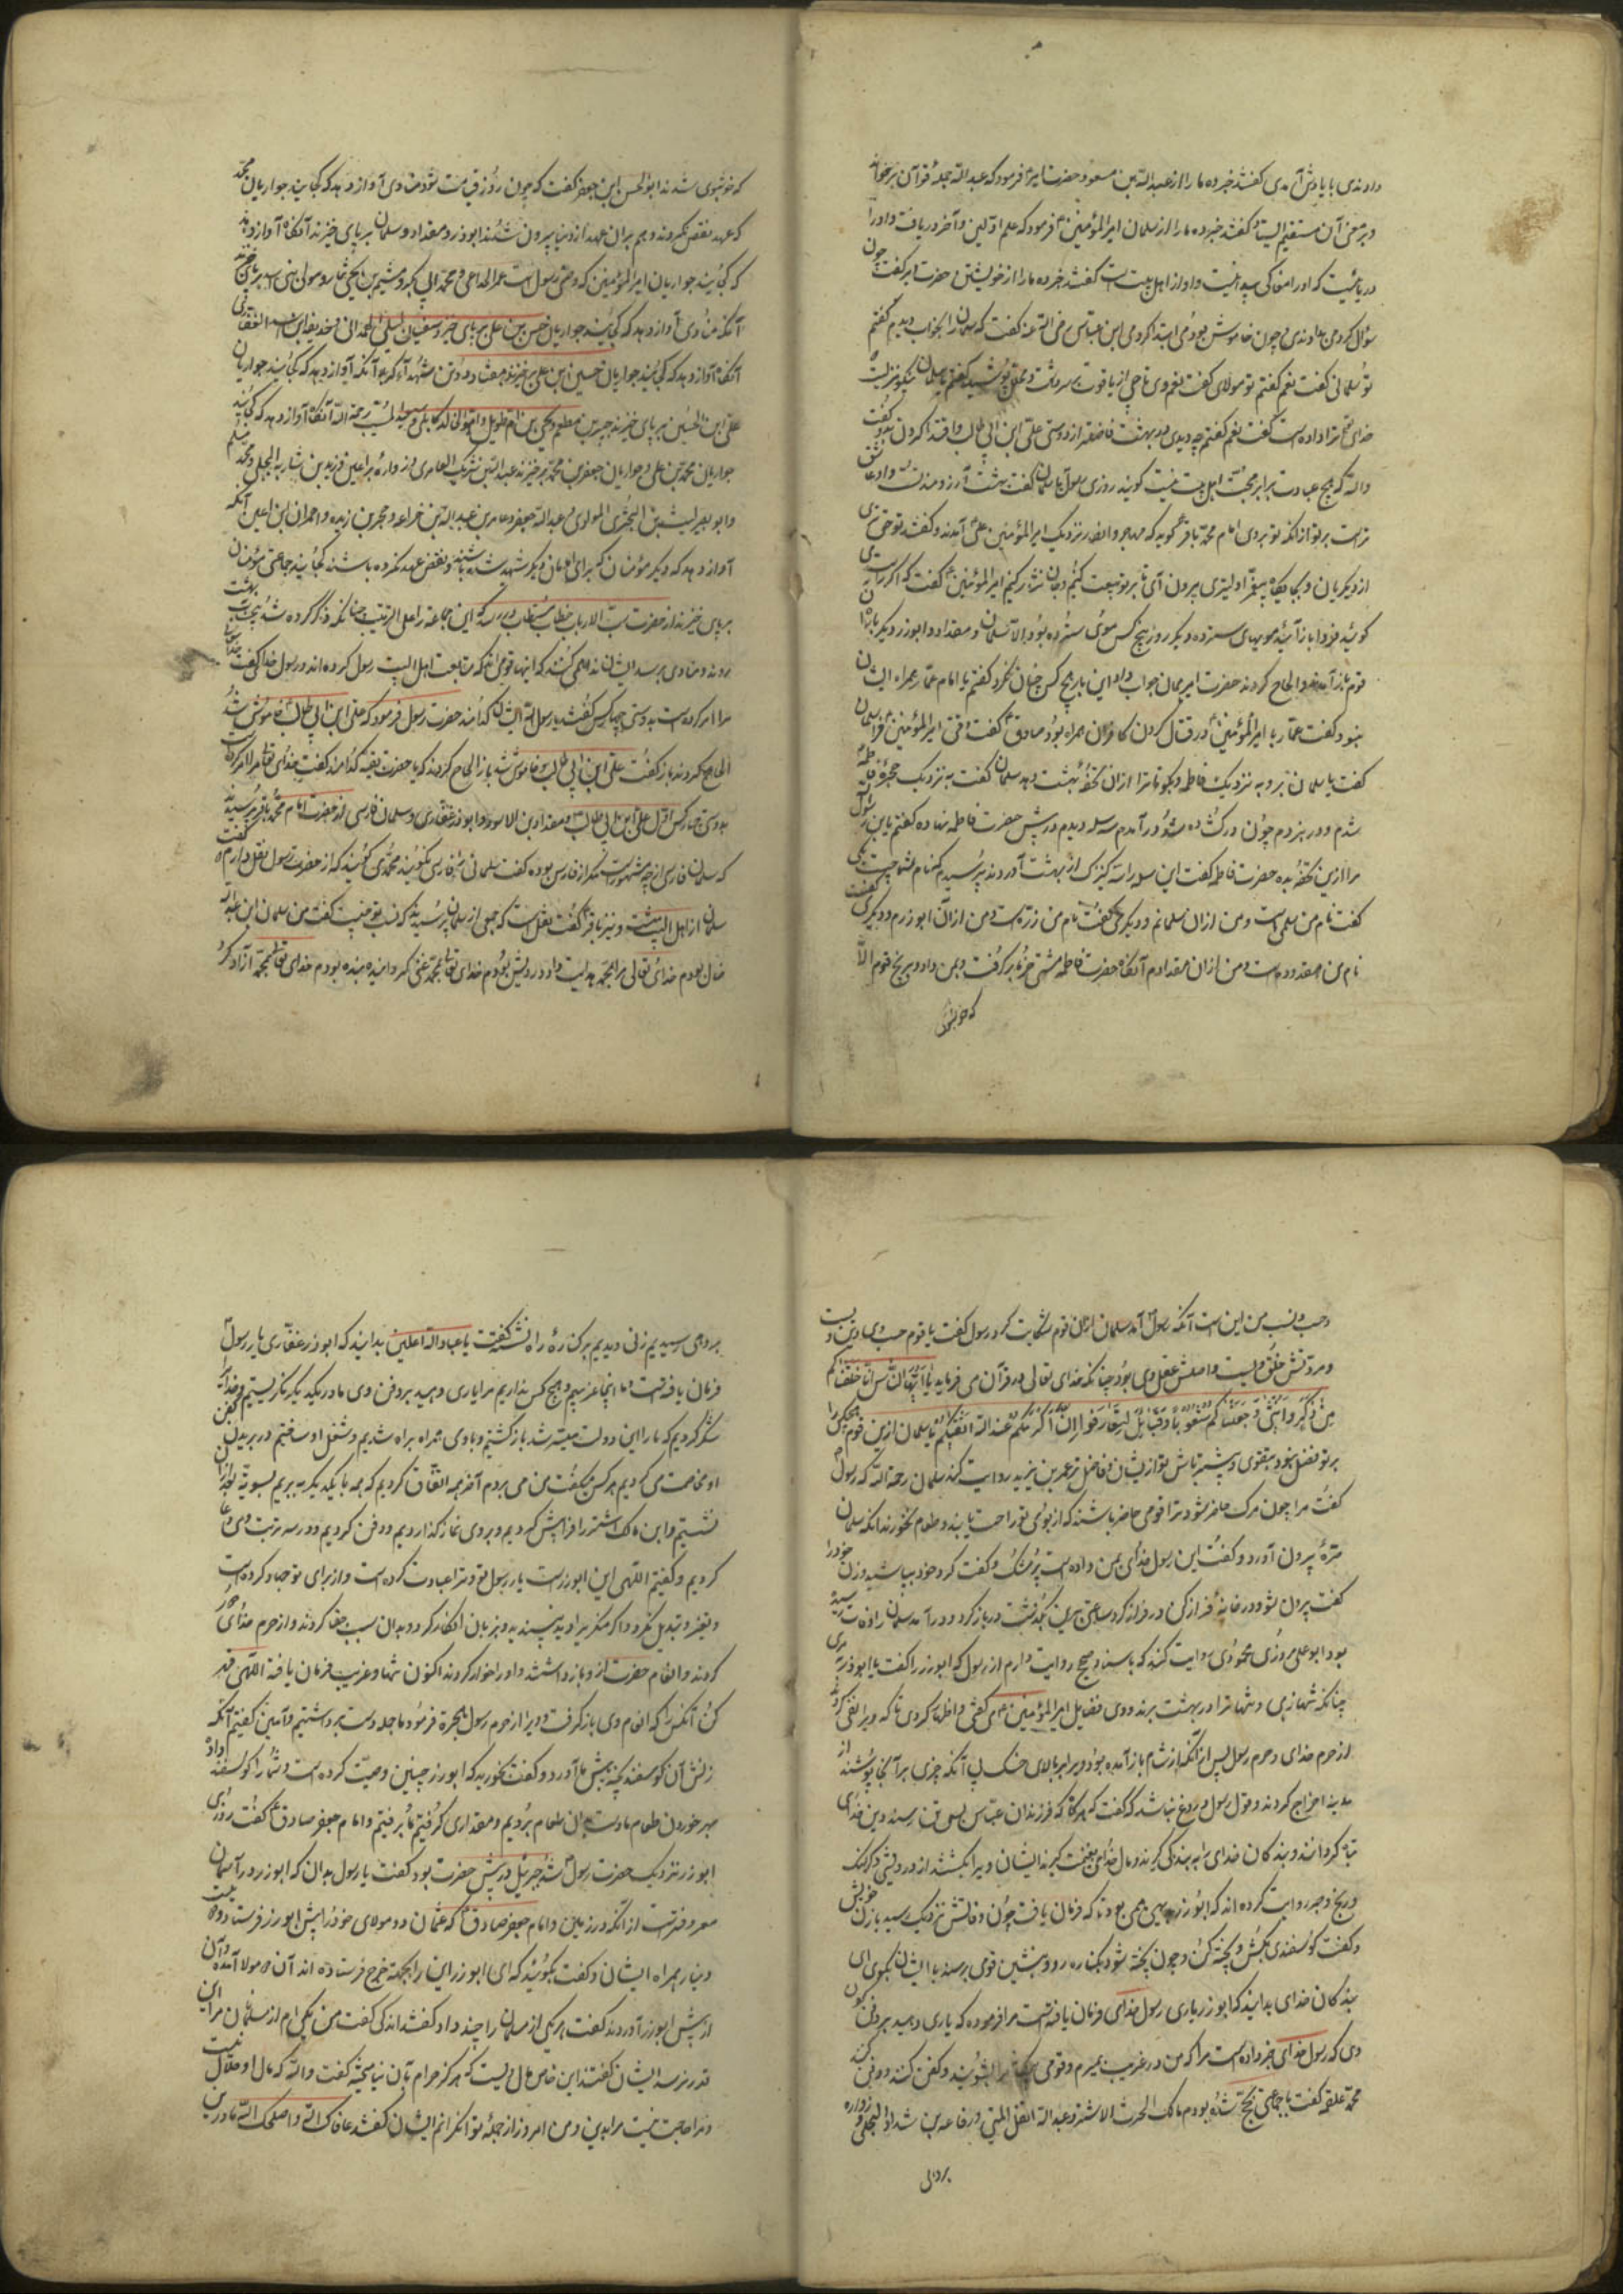 دادندی یا یادش آمدی گفتند خبر ده ما را از عبدالله بن مسعود حضرت امیر فرمود که عبدالله جمله قرآن برخواند
و بر معنی آن مستقیم الیستاد گفتند خبر ده ما را از سلمان امیرالمؤمنین فرمود که علم اولین و آخر دریافت و او را
دریائیست که او را منفاکی پیدا نیست و او از اهل بیت است گفتند خبر ده ما را از خویشتن حضرت امیر گفت چون
سؤال کردمی بدادندی و چون خاموش بودمی ابتدا کردمی ابن عباس رضی الله عنه گفت که سلمان را بخواب دیدم گفتم
تو سلمانی گفت نعم گفتم تو مولای گفت نعم وی تاجی از یاقوت بر سر داشت و حلل پوشیده گفتم یا سلمان نیکو منزلیست
خدای تعالی ترا داده است گفت نعم گفتم چه دیدی در بهشت فاضلتر از دوستی علی ابن ابی طالب و اقتدا کردن بدو گفت
والله که هیچ عبادت برابر محبت اهل بیت نیست گویند روزی رسول با سلمان گفت بهشت آرزومند تست و او عاشق
تر است بر تو از آنکه تو بر وی امام محمد باقر گوید که مهاجر و انصار نزدیک امیرالمؤمنین علی آمدند و گفتند تو حق تری
از دیگران و بجایگاه پیغمبر اولیتری بیرون آی تا بر تو بیعت کنیم و جان نثار کنیم امیرالمؤمنین گفت که اگر راست می
گوئید فردا باز آیید مویهای سترده دیگر روز هیچ کس موی سترده نبود الا سلمان و مقداد و ابوذر دیگر باره
قوم باز آمدند و الحاح کردند حضرت امیر همان جواب داد این بار هیچ کس چنان نکرد گفتم یا امام عمار همراه ایشان
نبود گفت عمار با امیرالمؤمنین در قتال کردن کافران همراه بود صادق گفت وقتی امیرالمؤمنین فرا سلمان
گفت یا سلمان برو به نزدیک فاطمه و بگو تا ترا از آن تحفه بهشت دهد سلمان گفت به نزدیک حجره فاطمه
شدم و در بزدم چون در گشاده شد و در آمدم سه سله دیدم در پیش حضرت فاطمه نهاده گفتم یا بنت رسول الله
مرا ازین تحفه بده حضرت فاطمه گفت این سله را سه کنیزک از بهشت آوردند پرسیدم که نام شما چیست یکی
گفت نام من سلمی است و من از آن سلمانم و دیگری گفت نام من ذره است و من از آن ابوذرم و دیگری گفت
نام من مقدوده است و من از آن مقدادم آنگاه حضرت فاطمه مشتی خرما برگرفت و بمن داد و بر هیچ قوم الا
که خوشبوی
که خوشبوی شدند ابوالحسن ابن جعفر گفت که چون روز قیامت شود منادی آواز دهد که کجایند حواریان محمد
که عهد نقض نکردند و هم بر آن عهد از دنیا بیرون شدند ابوذر و مقداد و سلمان بر پای خیزند آنگاه آواز دهد
که کجایند حواریان امیرالمؤمنین که وصی رسول است عمر الخزاعی و محمد ابی بکر و میثم بن یحیی تمار و مولی بنی اسد بر پای خیزند
آنگه منادی آواز دهد که کجایند حواریان حسن بن علی بر پای خیزد سفیان لیلی الهمدانی و حذیفه ابن اسید الغفاری
آنگه آواز دهد که کجایند حواریان حسین ابن علی برخیزند هفتاد و دو تن شهداء کربلا آنگه آواز دهد که کجایند حواریان
علی ابن الحسین بر پای خیزند جبیر بن مطعم و یحیی بن ام طویل و ابو خالد کابلی و سعید المسیب رحمة الله آنگاه آواز دهد که کجایند
حواریان محمد بن علی و حواریان جعفر بن محمد برخیزند عبدالله بن شریک العامری و زراره بن اعین و برید بن معاویه العجلی و محمد مسلم
و ابو بصیر لیث بن البختری المرادی و عبدالله جعفر و عامر بن عبدالله بن خزاعه و حجر بن زیده و حمران ابن اعین آنگه
آواز دهد که دیگر مؤمنان که برای امامان دیگر شهید شده باشند و نقض عهد نکرده باشند کجایند جماعتی مؤمنان
بر پای خیزند از حضرت رب الارباب خطاب مستطاب در رسد که این جماعة را علی الترتیب چنانکه ذکر کرده شد بجانب بهشت
روند و منادی برسد ایشان ندا می کنند که اینها قومی اند که متابعت اهل البیت رسول کرده اند و رسول خدا گفت خدای تعالی
مرا امر کرده است به دوستی چهار کس گفتند یا رسول الله ایشان کدامند حضرت رسول فرمود که علی ابن ابی طالب خاموش شد
الحاح کردند باز گفت علی ابن ابی طالب و خاموش شد باز الحاح کردند که یا حضرت بقیه کدامند گفت خدای تعالی مرا امر کرده است
بدوستی چهار کس اول علی ابن ابی طالب و مقداد بن الاسود و ابوذر غفاری و سلمان فارسی از حضرت امام محمد باقر پرسیدند
که سلمان فارسی از چه مشهور است مگر از فارس بوده گفت سلمانی را فارسی نگوئید محمدی گوئید که از حضرت رسول نقل دارم که گفت
سلمان از اهل البیت است و نیز باقر گفت نقل است که جمعی از سلمان پرسیدند که نسب تو چیست گفت من سلمان ابن عبدالله
ضال بودم خدای تعالی مرا بمحمد هدایت داد و درویش بودم خدای تعالی بمحمد غنی گردانید و بنده بودم خدای تعالی بمحمد آزاد کرد
و حسب و نسب من این است آنگه رسول آمد سلمان از آن قوم شکایت کرد رسول گفت یا قوم حسب وی دین ویست
و مروتش خلق ویست و اصلش عقل وی بود چنانکه خدای تعالی در قرآن می فرماید یا ایها الناس انا خلقناکم
من ذکر و انثی و جعلناکم شعوبا و قبائل لتعارفوا ان اکرمکم عند الله اتقیکم یا سلمان ازین قوم هیچ یکی را
بر تو فضل نبود و بتقوی و بیشتر باش تو از ایشان فاضل تر عمر بن یزید روایت کند سلمان رحمة الله که رسول
گفت مرا چون مرگ حاضر شود ترا قومی حاضر باشند که از بوی تو راحت یابند و طعام نخورند آنگه سلمان
صره بیرون آورد و گفت این رسول خدای بمن داده است پر مشک و گفت گرد خود بپاشید و زن خود را
گفت بیرون شو و در خانه فراز کن در فراز کرد ساعتی برین بگذشت در باز کرد و در آمد سلمان را وفات رسیده
بود ابو علی مروزی محمودی روایت کند که باسناد صحیح روایت دارم از رسول که ابوذر را گفت یا اباذر میری
چنانکه تنها زیی و تنها ترا در بهشت برند و وی فضایل امیرالمؤمنین علی گفتی و اظهار کردی تا که ویرا نفی کردند
از حرم خدای و حرم رسول پس از آنکه از شام باز آمده بود و ویرا بر بالای خشک بی آنکه چیزی بر آنجا پوشند از
مدینه اخراج کردند و قول رسول دروغ نباشد که گفت که هر گاه که فرزندان عباس بسی تن رسند دین خدای
تباه گردانند و بندگان خدای را به بندگی گیرند و مال خدای بغنیمت گیرند ایشان ویرا بکشتند از درویشی و گرسنگی
و رنج و ضجر روایت کرده اند که ابوذر به همین همی بود تا که فرمان یافت چون وفاتش نزدیک رسید با زن خویش
و گفت گوسفندی بکش و پخته کن و چون پخته شود بکناره رود بنشین قومی برسند با ایشان بگوی ای
بندگان خدای بدانید که ابوذر یاری رسول خدای فرمان یافته است مرا فرموده که یاری دهید بر دفن
وی که رسول خدای خبر داده است مرا که من در غریب بمیرم و قومی بیایند مرا بشویند و کفن کنند و دفن کنند
محمد علقمه گفت با جماعتی بحج شده بودم مالک الحرث الاشتر و عبدالله الفضل التمیمی و رفاعه بن شداد البجلی و
براهی
براهی رسیدیم زنی دیدیم بر کناره راه نشسته گفت یا عباد الله اعلمین بدانید که ابوذر غفاری یار رسول
فرمان یافته است اما اینجا غریبیم و هیچ کس نداریم مرا یاری دهید بر دفن وی ما در یکدیگر نگریستیم و خدای را
شکر کردیم که ما را این دولت میسر شد بازگشتیم و با وی همراه براه شدیم و شغل او ساختیم در بریدن کفن
او مخاصمت می کردیم هر کس میگفت من می برم آخر بر همه اتفاق کردیم که همه با یکدیگر ببریم بسویت تا بگور
نشستیم و ابن مالک اشتر را فرا پیش کردیم و بر وی نماز گذاردیم و دفن کردیم و در سر تربت وی دعا
کردیم و گفتیم اللهی این ابوذر است یار رسول تو و ترا عبادت کرده است و از برای تو جهاد کرده است
و تغیر و تبدیل نکرد و اگر منکر بر او پدید پسندیده و بزبان انکار کرد و بدان سبب جفا کردند و از حرم خدای دور
کردند و انعام حضرت از او باز داشتند و او را خوار کردند اکنون تنها و غریب فرمان یافته اللهی قهر
کن آنکس را که انعام وی باز گرفت و ویرا از حرم رسول بهجرة فرمود ما جمله دست برداشتیم و آمین گفتیم آنگه
زنش آن گوسفند پخته پیش ما آورد و گفت بخورید که ابوذر چنین وصیت کرده است و شما را گوسفند داد
بهر خوردن طعام ما دست بدان طعام بردیم و مقداری گرفتیم تا برفتیم و امام جعفر صادق گفت روزی
ابوذر نزدیک حضرت رسول شد جبرئیل در پیش حضرت بود گفت یا رسول بدان که ابوذر در آسمان
معروفتر است از آنکه در زمین و امام جعفر صادق که عثمان دو مولای خود را پیش ابوذر فرستاد دویست
دینار همراه ایشان و گفت بگوئید که ای ابوذر این را بجهة خرج فرستاده اند آن مولا آمدند و آن
از پیش ابوذر آوردند گفت هر یکی از مسلمانان را چند داد گفتند اندکی گفت من یکی ام از مسلمانان مرا این
قدر نرسد ایشان گفتند این خاص مال ویست که هرگز حرام بآن نیامیخته گفت والله که مال او حلال نیست
و مرا حاجت نیست مرا بدین و من امروز از جمله توانگرانم ایشان گفتند عافاک الله و اصلحک الله ما درین